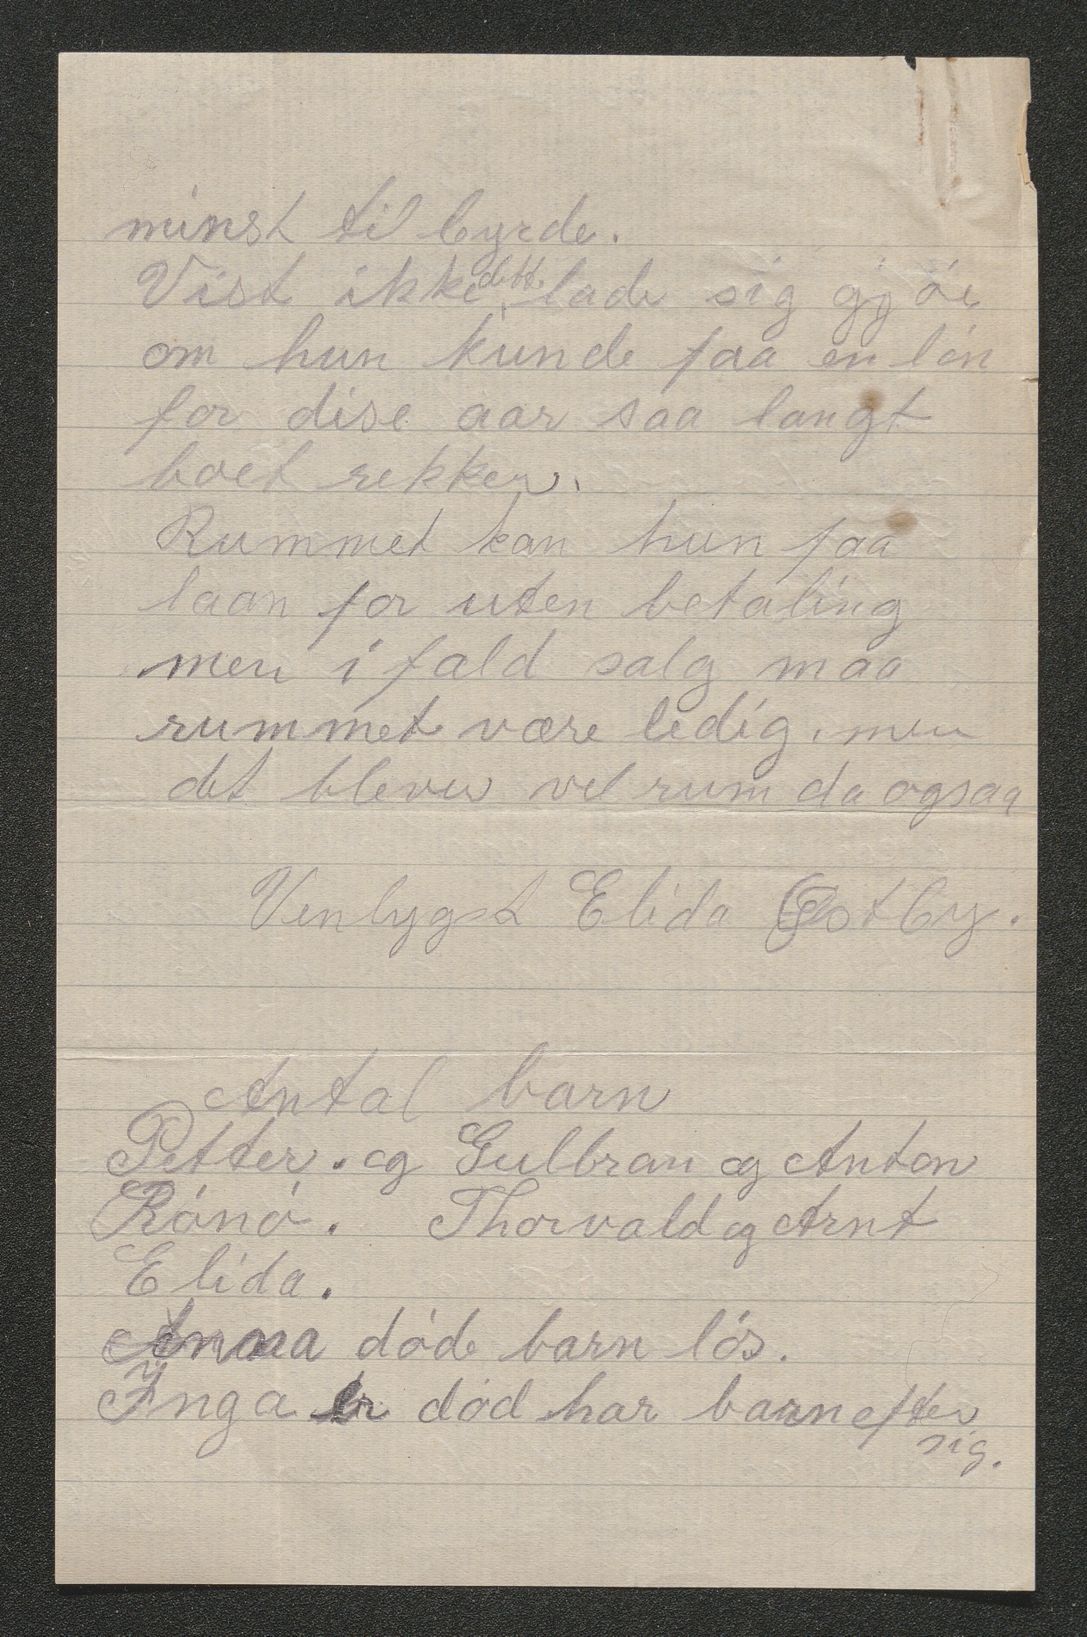 minst til byrde.
Vist ikke dette lade sig gjøre
om hun kunde faa en løn
for dise aar saa langt
boet rekker.
Rummet kan hun faa
laan for uten betaling
men i fald salg maa
rummet være ledig. men
det blever vel rum da ogsaa
Venlygst Elida Østby.
Antal barn
Petter. og Gulbran og Anton
Rónó. Thorvald og Arnt
Elida.
Anna døde barn løs.
Inga er død har barn efter
sig.